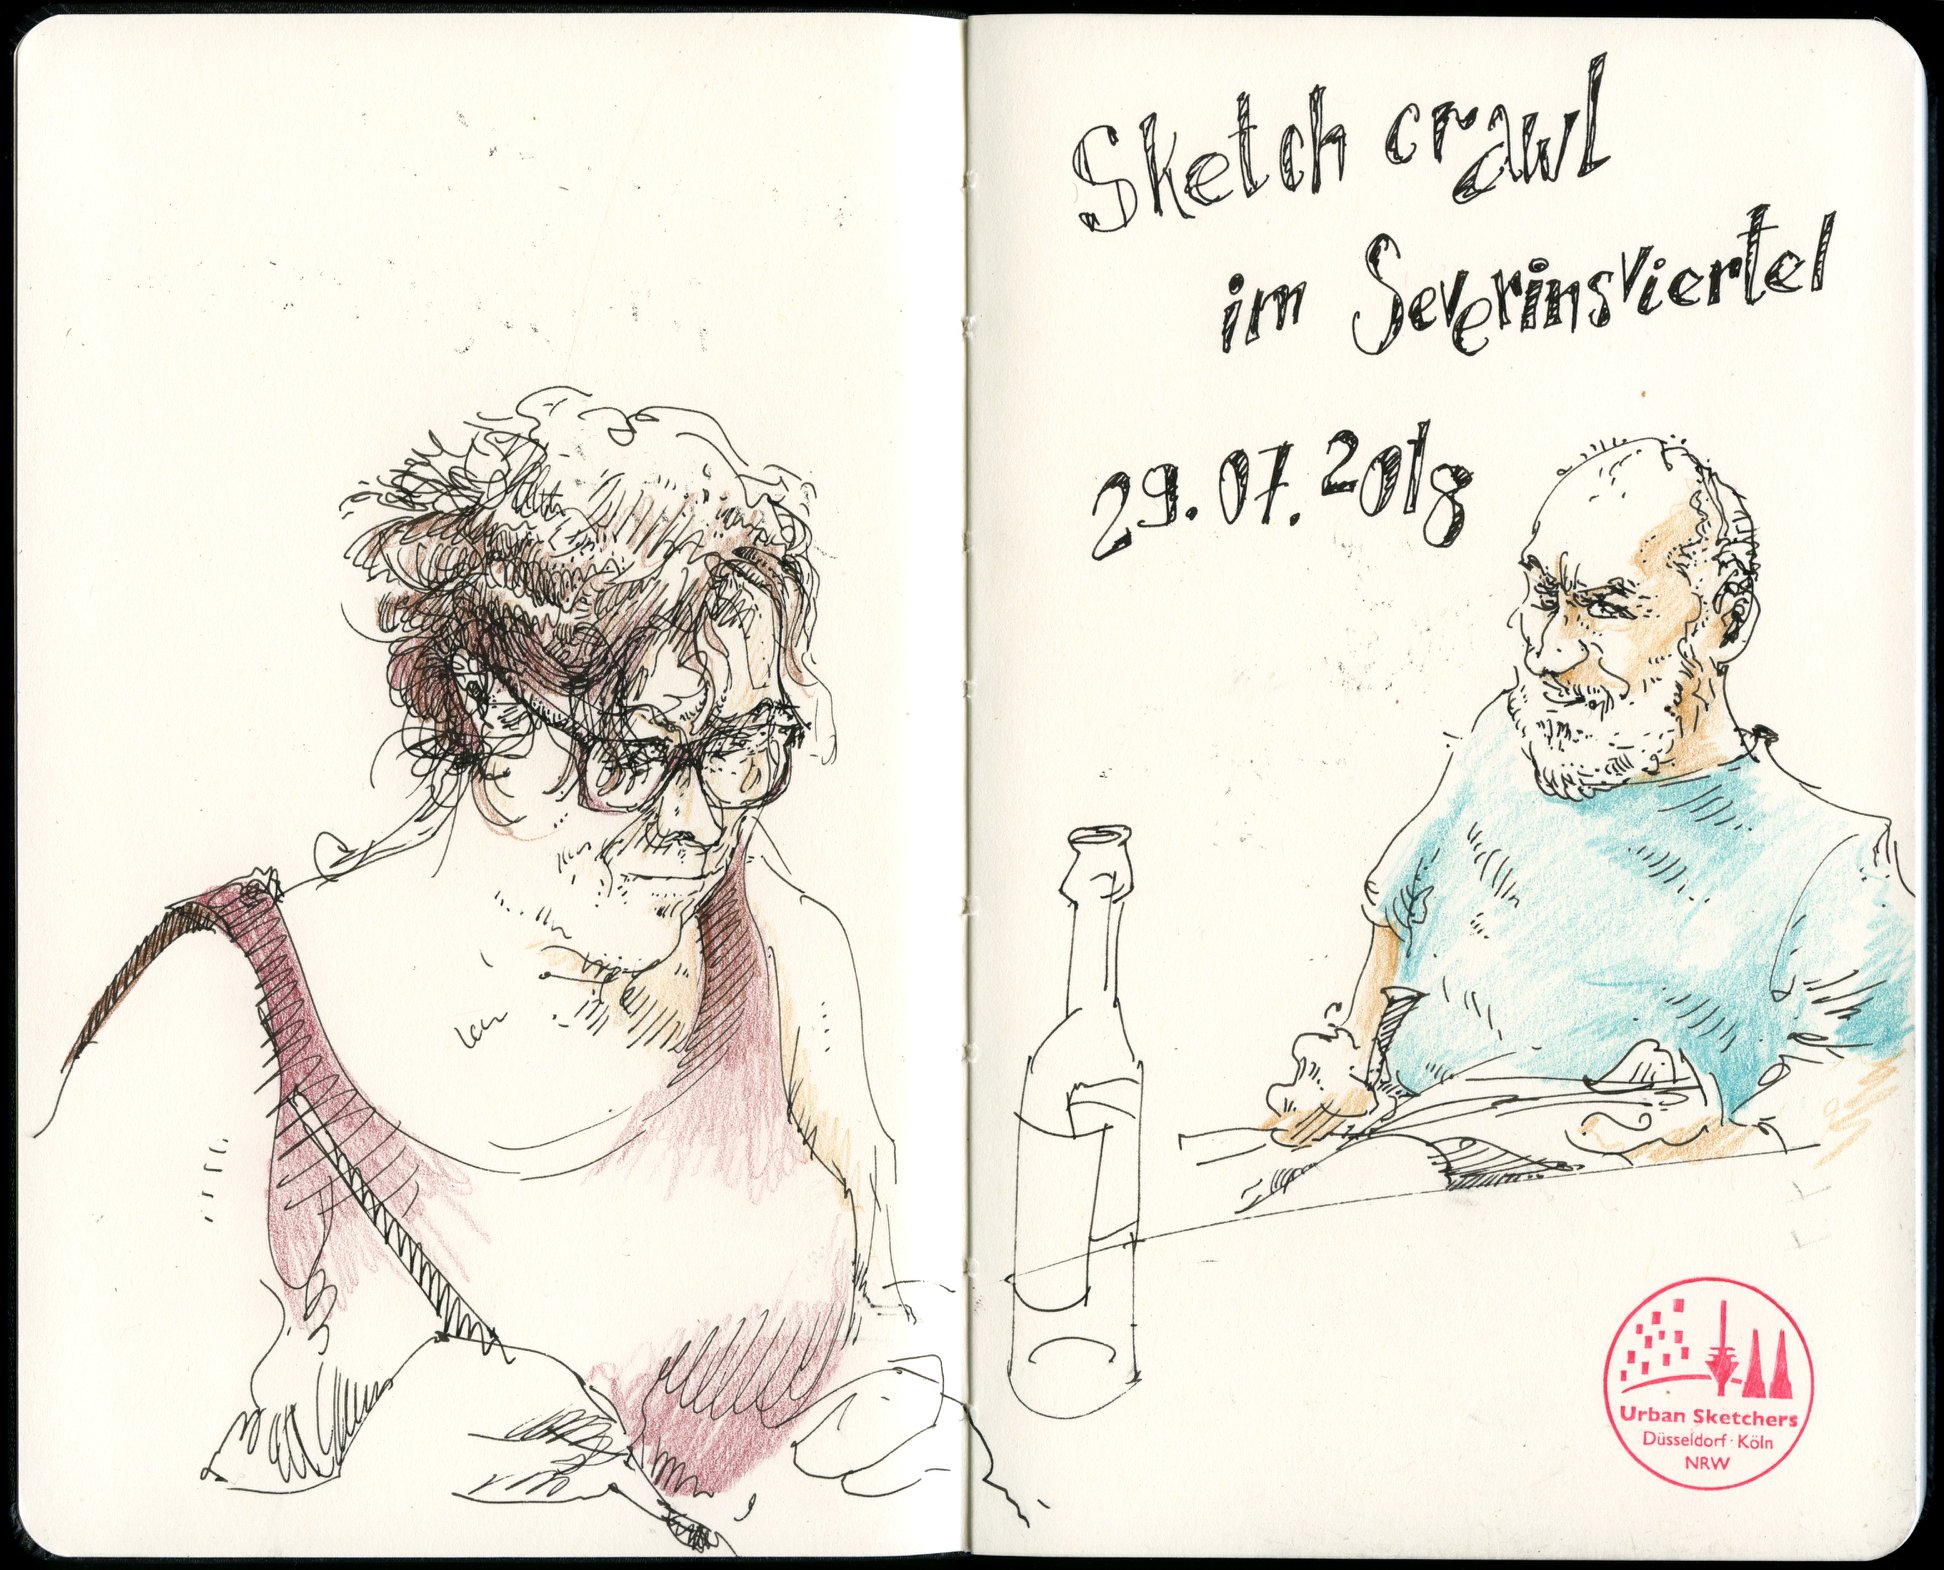 Sketch crawl
im Severinsviertel
29.07.2018
Urban Sketchers
Düsseldorf · Köln
NRW